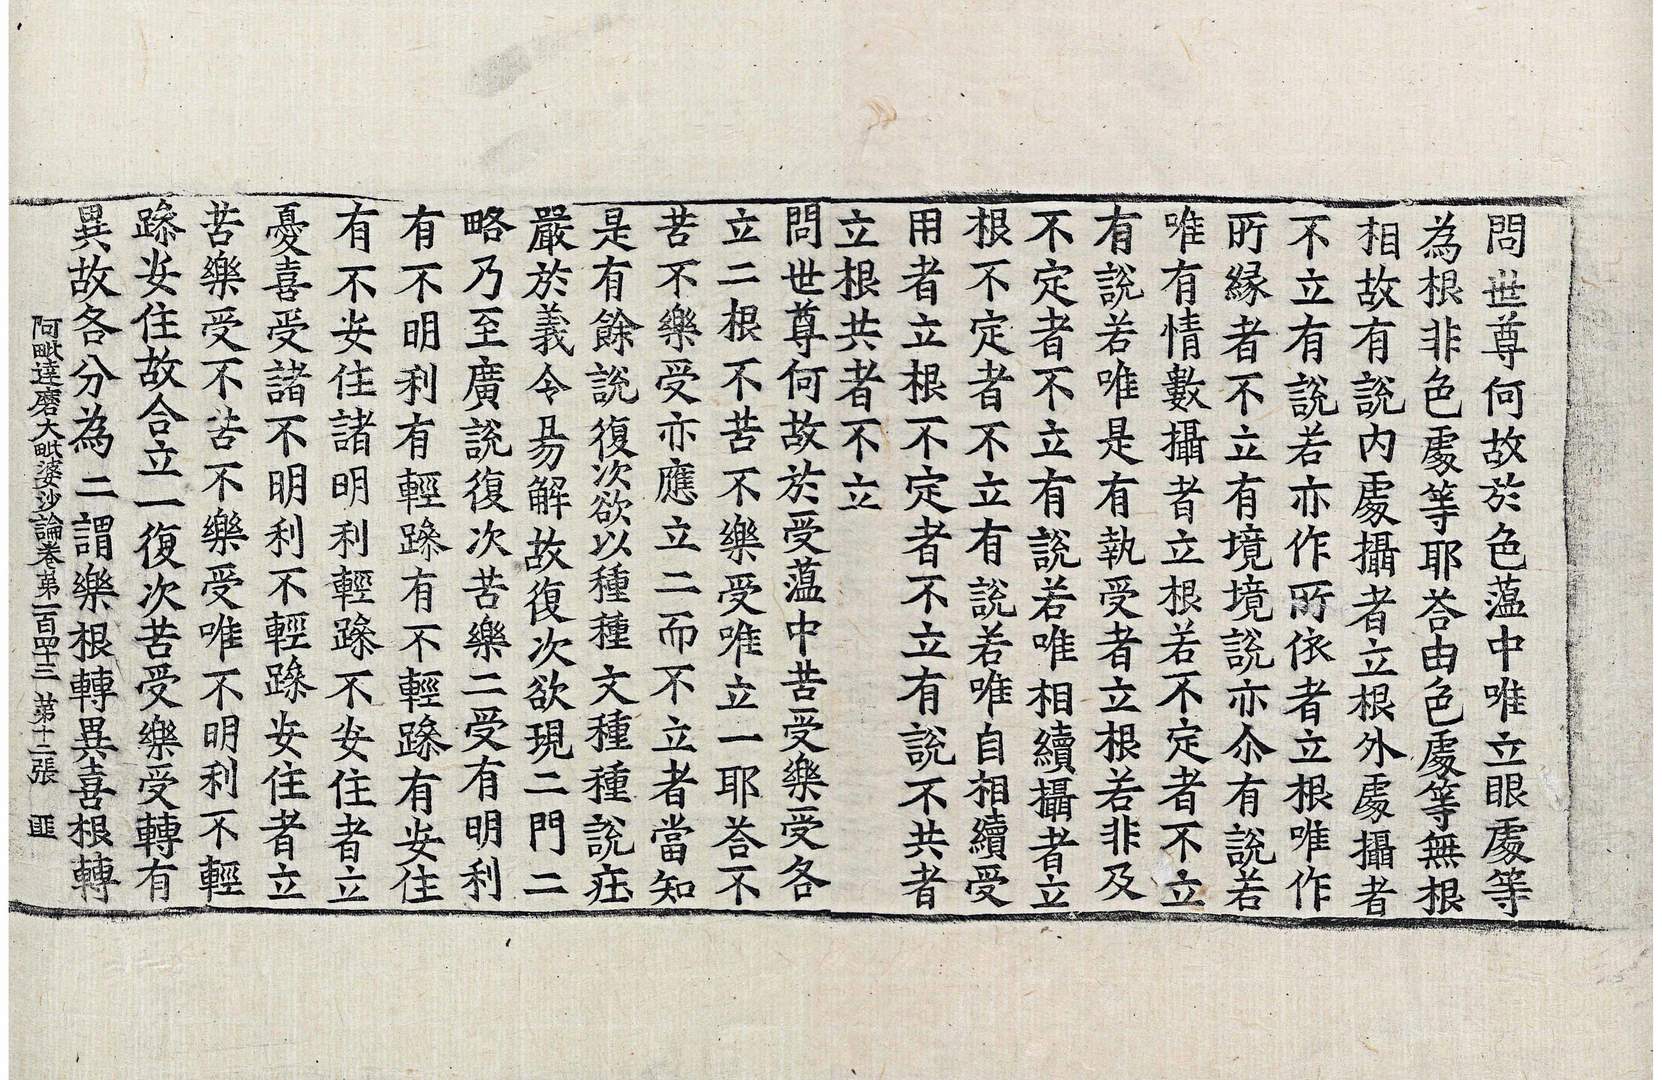 問世尊何故於色蕰中唯立眼處等
為根非色處等耶荅由色處等無根
相故有說內處攝者立根外處攝者
不立有說若亦作所依者立根唯作
所縁者不立有境境說亦尒有說若
唯有情數攝者立根若不定者不立
有說若唯是有執受者立根若非及
不定者不立有說若唯相續攝者立
根不定者不立有說若唯自相續受
用者立根不定者不立有說不共者
立根共者不立
問世尊何故於受蕰中苦受樂受各
立二根不苦不樂受唯立一耶荅不
苦不樂受亦應立二而不立者當知
是有餘說復次欲以種種文種種說莊
嚴於義令易解故復次欲現二門二
略乃至廣說復次苦樂二受有明利
有不明利有輕躁有不輕躁有安住
有不安住諸明利輕躁不安住者立
憂喜受諸不明利不輕躁安住者立
苦樂受不苦不樂受唯不明利不輕
躁安住故合立一復次苦受樂受轉有
異故各分為二謂樂根轉異喜根轉
阿毗達磨大毗婆沙論卷第一百四十三 第十二張 匪